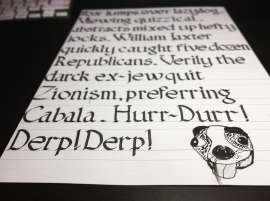 Fox jumps over lazy dog.
Viewing quizzical,
abstracts mixed up hefty
jocks. William Jaxter
quickly caught five dozen
Republicans. Verily the
darck ex-jew quit
Zionism, preferring
Cabala. Hurr-Durr!
Derp! Derp!